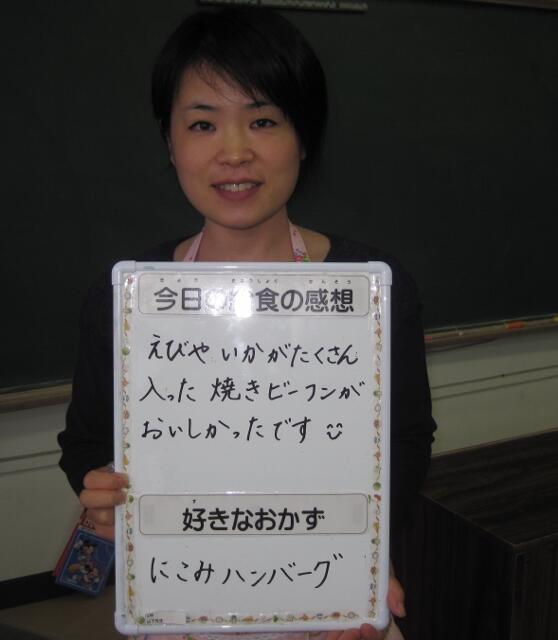 今日の給食の感想
えびや いかがたくさん
入った 焼きビーフンが
おいしかったです
好きなおかず
にこみハンバーグ